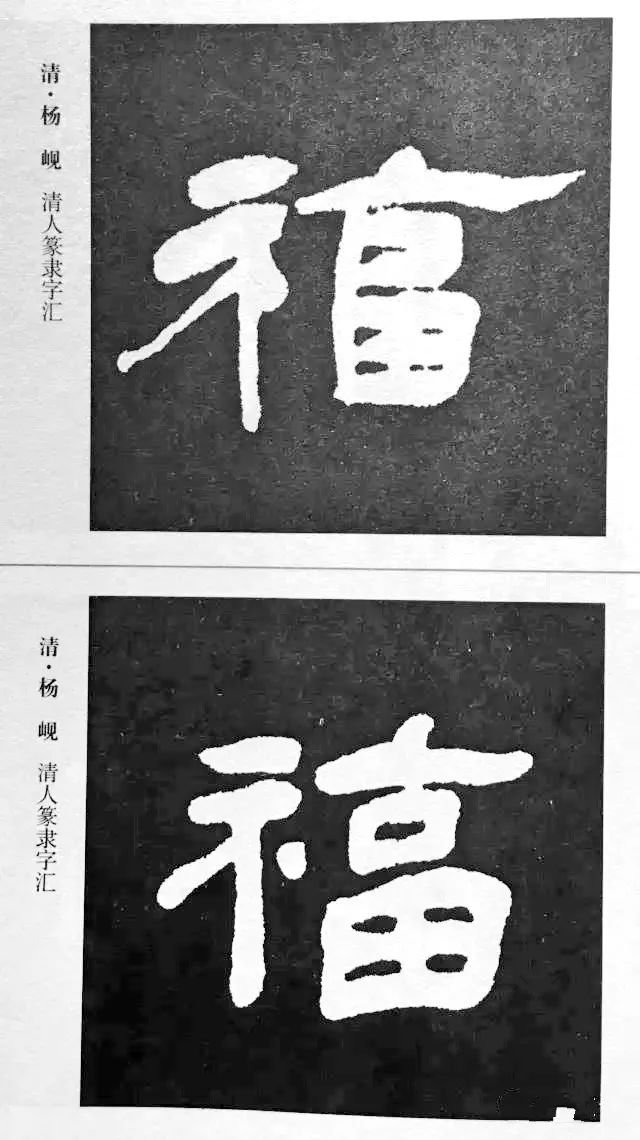 清·杨岘 清人篆隶字汇
福
清·杨岘 清人篆隶字汇
福